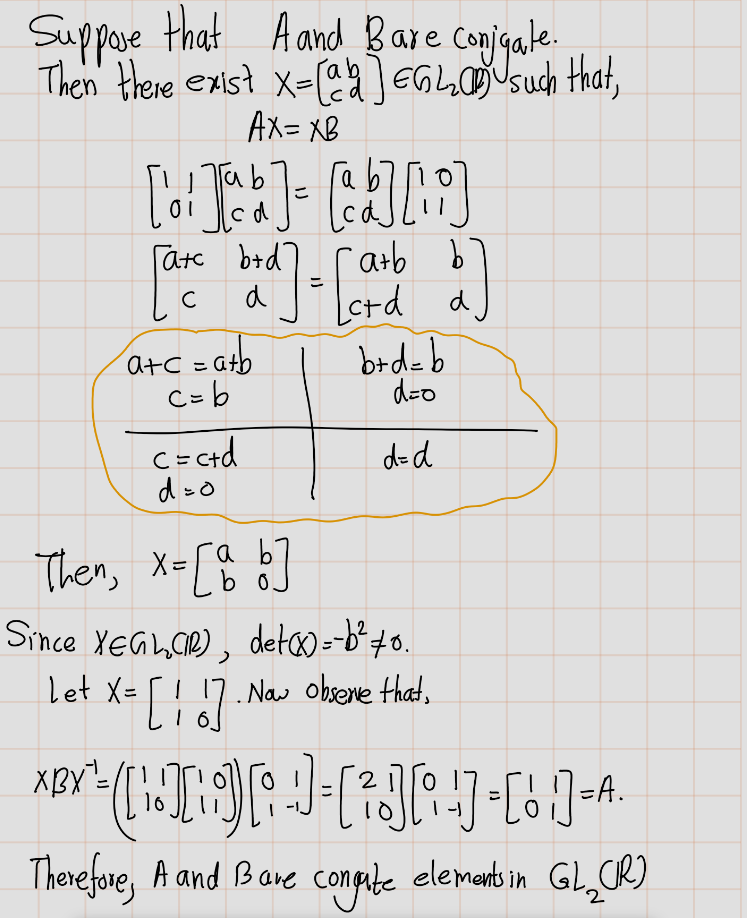 Suppose that A and B are conjgate.
Then there exist X=[a b
c d] ∈ GL₂(ℝ) such that,
AX = XB
[1 1
0 1][a b
c d] = [a b
c d][1 0
1 1]
[a+c b+d
c d] = [a+b b
c+d d]
a+c = a+b
c = b
b+d = b
d=0
c = c+d
d = 0
d=d
Then, X = [a b
b 0]
Since X∈GL₂(ℝ), det(X) = -b² ≠ 0.
Let X = [1 1
1 0]. Now observe that,
XBX⁻¹ = ([1 1
1 0][1 0
1 1])[0 1
1 -1] = [2 1
1 0][0 1
1 -1] = [1 1
0 1] = A.
Therefore, A and B are congate elements in GL₂(ℝ)